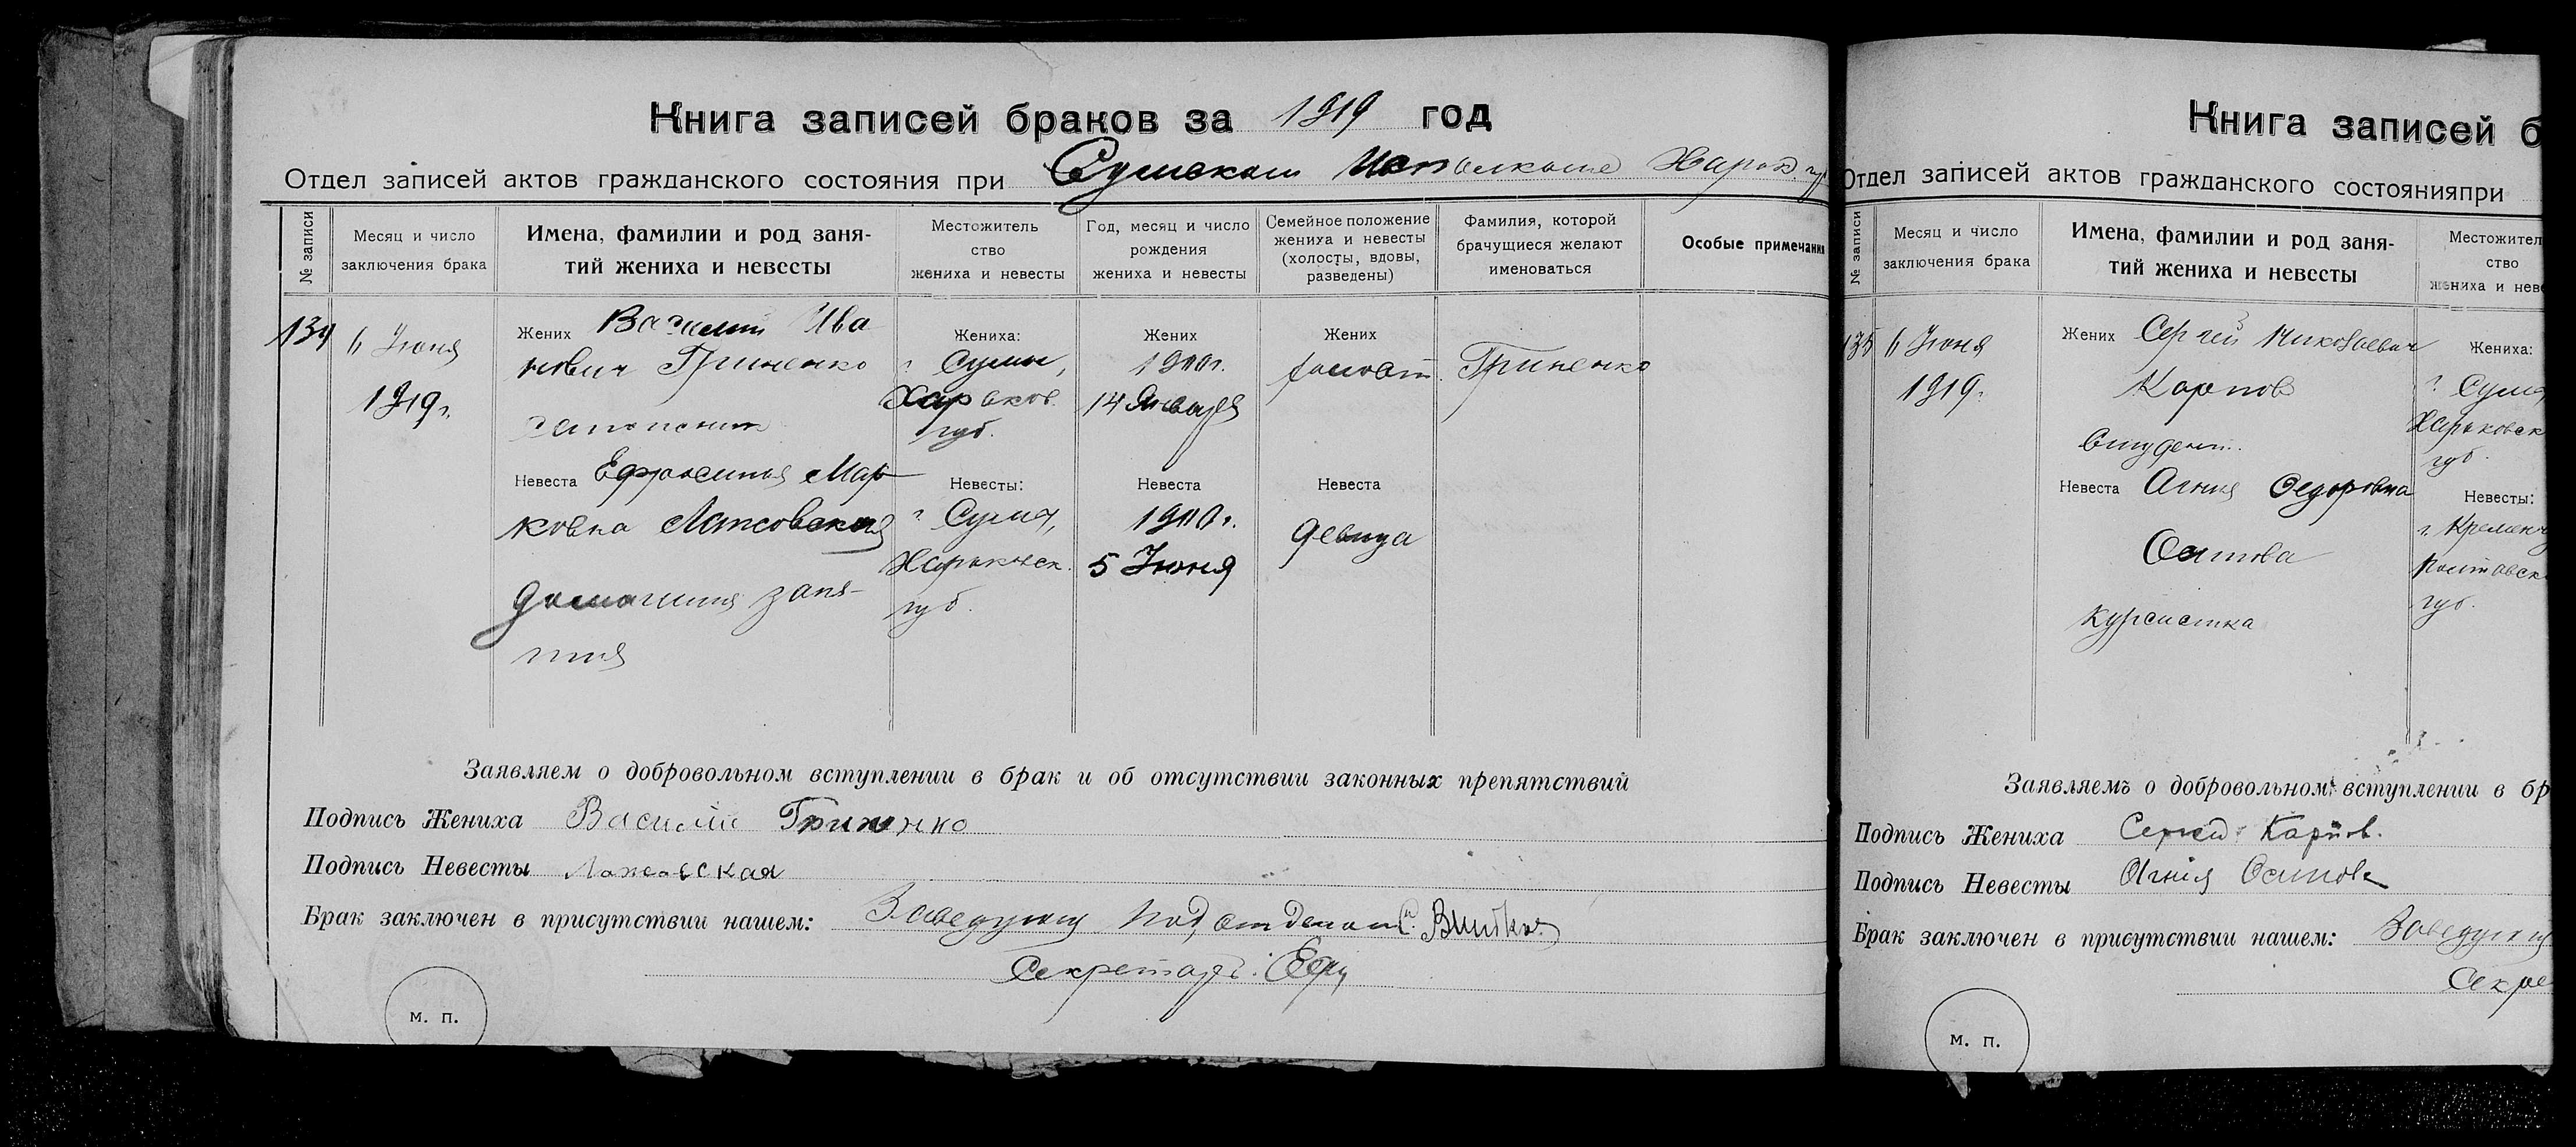 Книга записей браков за 1919 год
Отдел записей актов гражданского состояния при Сумском Исполкоме Харьк. гу
№ записи
Месяц и число
заключения брака
Имена, фамилии и род заня-
тий жениха и невесты
Местожитель
ство
жениха и невесты
Год, месяц и число
рождения
жениха и невесты
Семейное положение
жениха и невесты
(холосты, вдовы,
разведены)
Фамилия, которой
брачущиеся желают
именоваться
Особые примечани
134
6 Июня
1919 г.
Жених Василий Ива
нович Гриненко
Невеста Ефросинья Мар
ковна
домашния заня-
тия
Жениха:
г. Сумы,
Харьков.
губ.
Невесты:
г. Сумы,
Харьковск.
губ.
Жених
1900 г.
14 Января
Невеста
1900 г.
5 Июня
Жених
холост
Невеста
девица
Гриненко
Заявляем о добровольном вступлении в брак и об отсутствии законных препятствий
Подпись Жениха Василий Гриненко
Подпись Невесты
Брак заключен в присутствии нашем: Заведующий подотделом
Секретарь:
м. п.
Книга записей б
Отдел записей актов гражданского состоянияпри
№ записи
Месяц и число
заключения брака
Имена, фамилии и род заня-
тий жениха и невесты
Местожител
ство
жениха и неве
135
6 Июня
1919 г.
Жених Сергей Николаевич
Карпов
Студент.
Невеста Агния Федоровна
Осипова
курсистка
Жениха:
г. Сумы,
Харьковск
губ.
Невесты:
г. Кременчу
Полтавск
губ.
Заявляемъ о добровольном вступлении в бр
Подпись Жениха Сергей Карпов.
Подпись Невесты Агнія Осипова
Брак заключен в присутствии нашем: Заведующ
Секре
м. п.